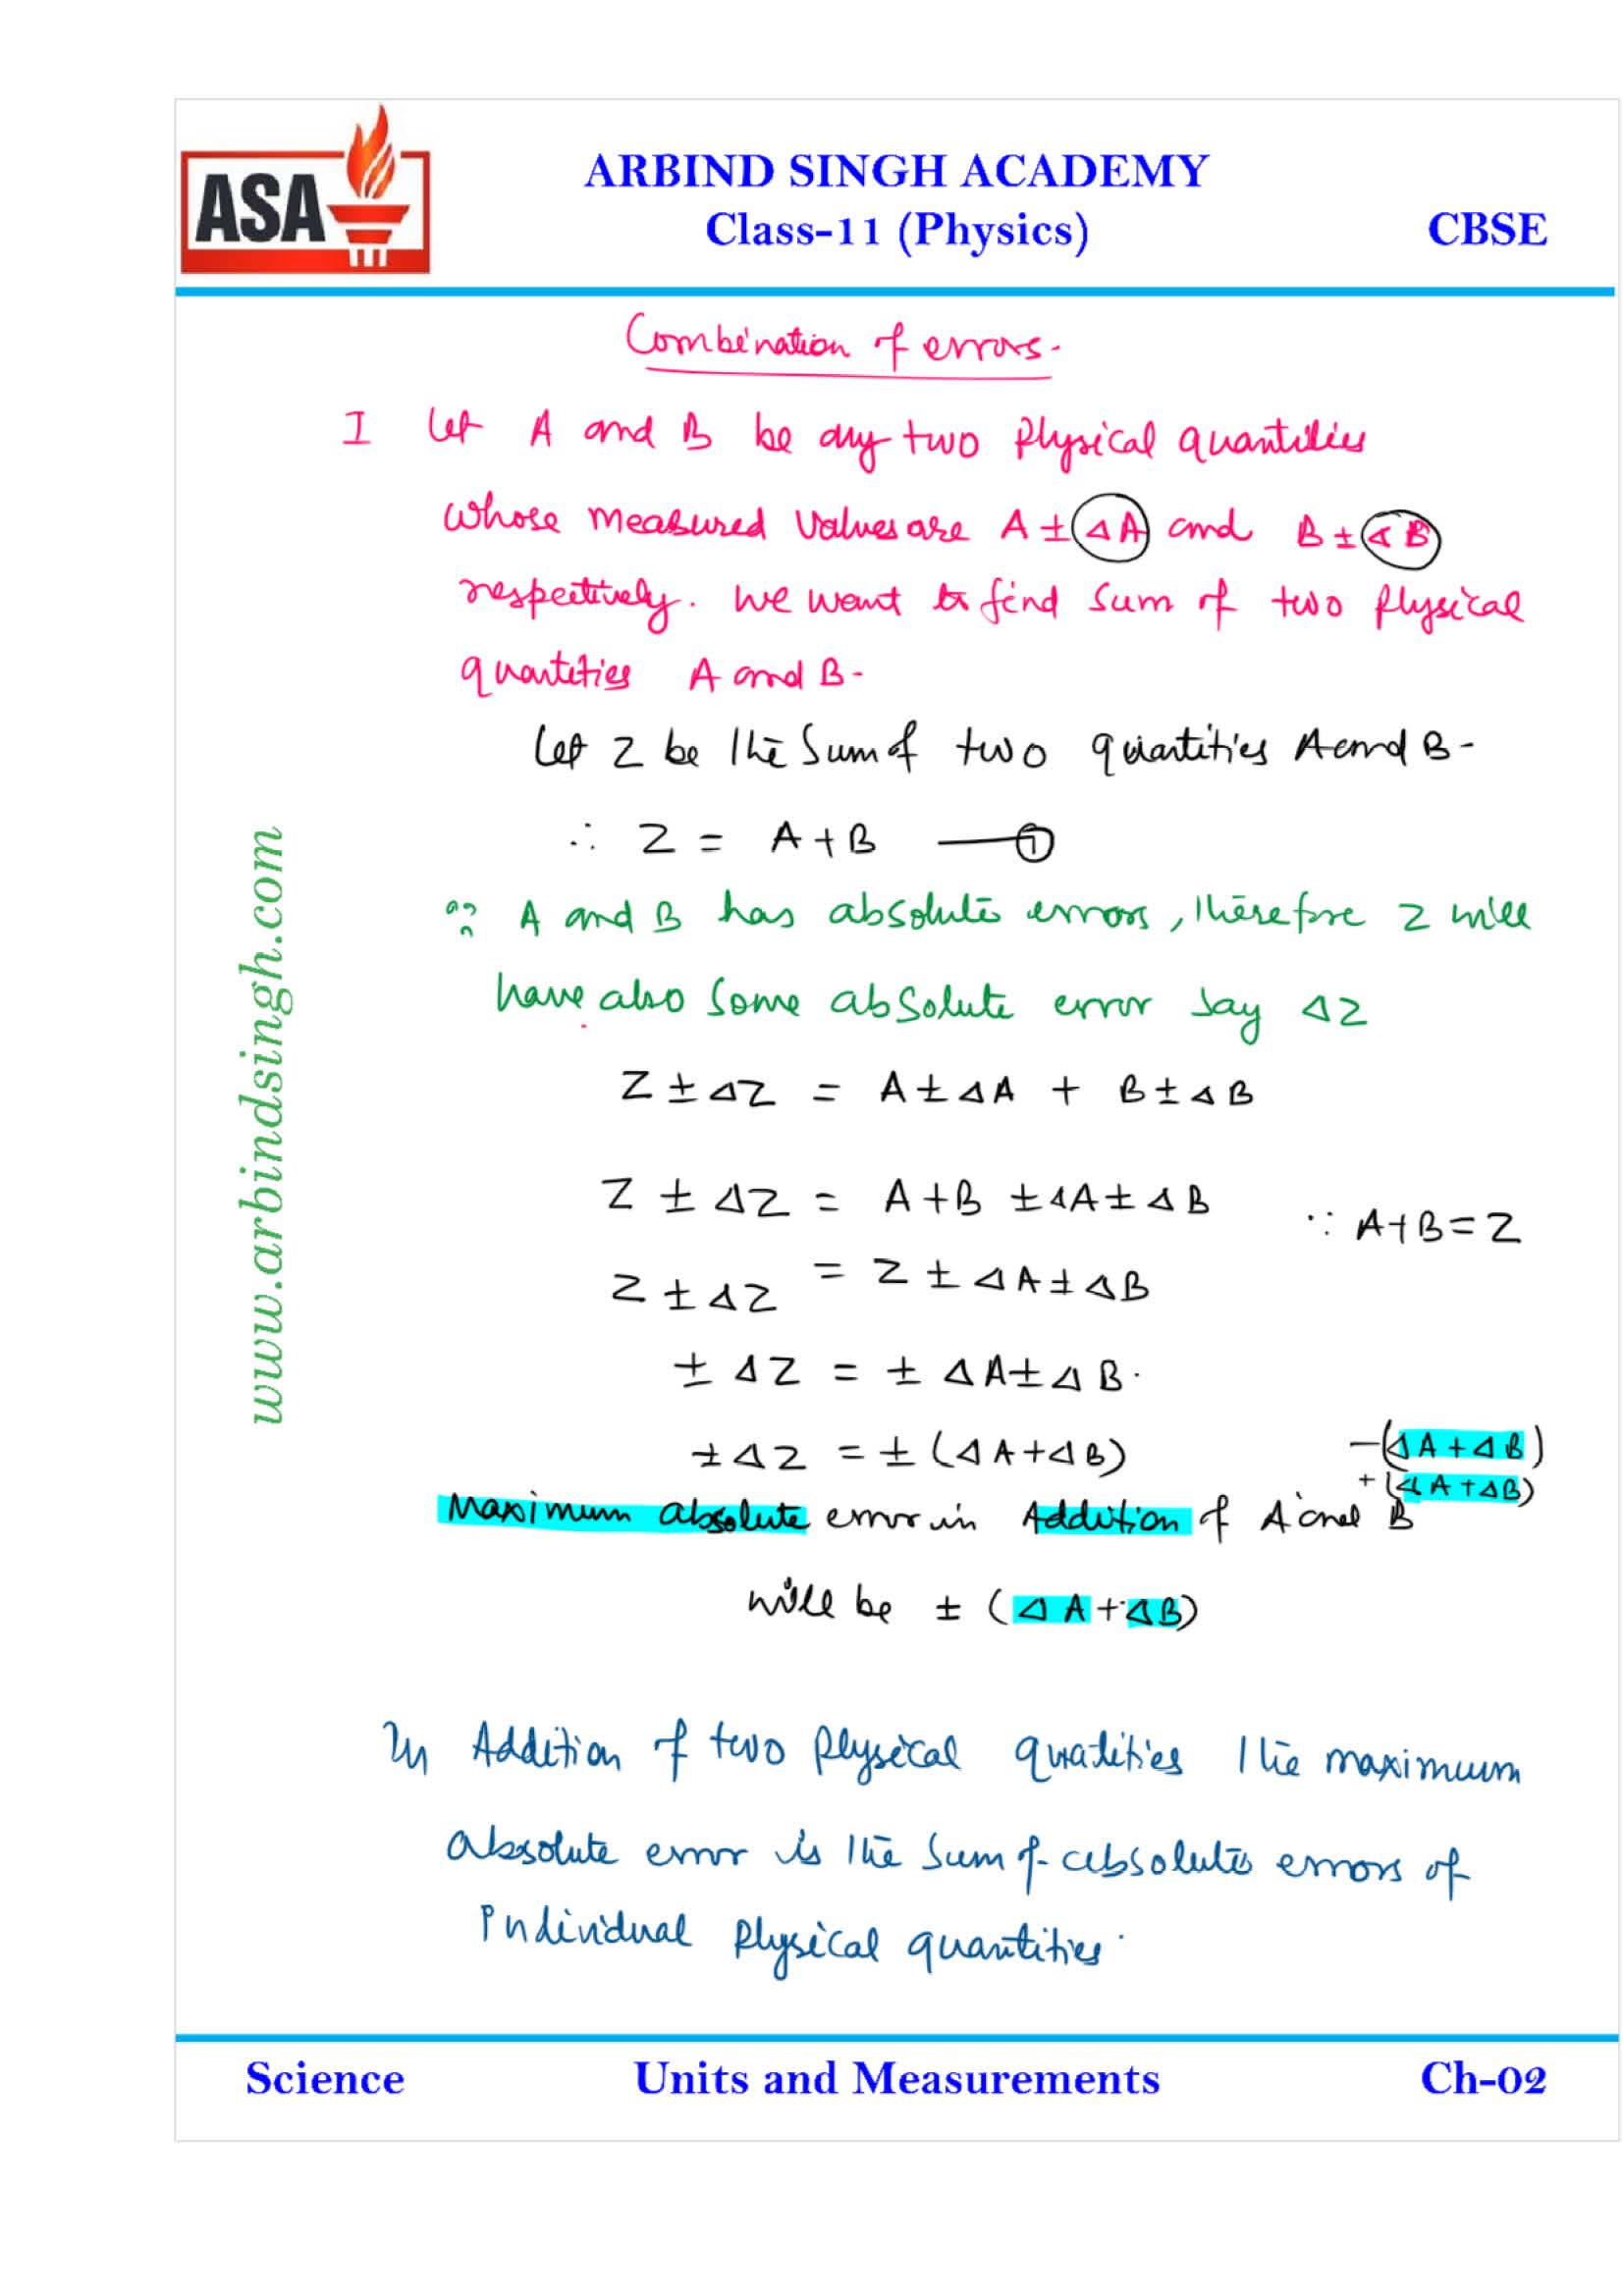 ASA
ARBIND SINGH ACADEMY
Class-11 (Physics)
CBSE
Combination of errors.
I Let A and B be any two Physical quantities
whose measured values are A ± ΔA and B ± ΔB
respectively. We want to find sum of two physical
quantities A and B.
Let Z be the sum of two quantities A and B.
∴ Z = A + B —①
∵ A and B has absolute errors, therefore Z will
have also some absolute error say ΔZ
Z ± ΔZ = A ± ΔA + B ± ΔB
Z ± ΔZ = A + B ± ΔA ± ΔB
∵ A + B = Z
Z ± ΔZ = Z ± ΔA ± ΔB
± ΔZ = ± ΔA ± ΔB.
± ΔZ = ± (ΔA + ΔB)
-(ΔA + ΔB)
+(ΔA + ΔB)
Maximum absolute error in Addition of A and B
will be ± (ΔA + ΔB)
In Addition of two physical quatities the maximum
absolute error is the sum of absolute errors of
Individual physical quantities.
www.arbindsingh.com
Science
Units and Measurements
Ch-02